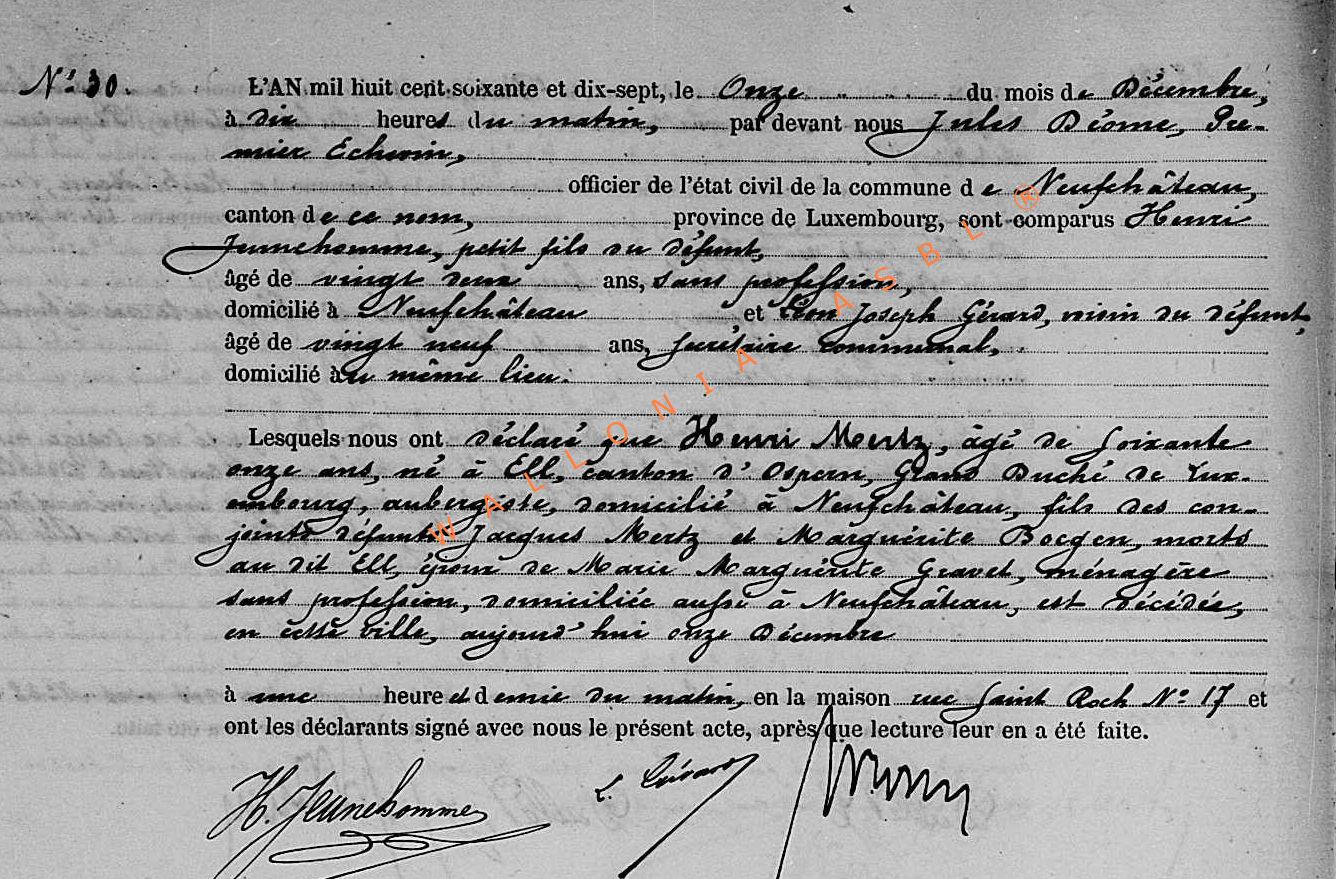 N° 30.
L'AN mil huit cent soixante et dix-sept, le Onze du mois de Décembre,
à dix heures du matin, par devant nous Jules Déome, Pre-
mier Echevin,
officier de l'état civil de la commune de Neufchâteau,
canton de ce nom, province de Luxembourg, sont comparus Henri
Jeunehomme, petit fils du défunt,
âgé de vingt deux ans, sans profession,
domicilié à Neufchâteau, et Léon Joseph Gérard, voisin du défunt,
âgé de vingt neuf ans, secrétaire communal,
domicilié au même lieu.
Lesquels nous ont déclaré que Henri Mertz, âgé de soixante
onze ans, né à Ell, canton d'Ospern, Grand Duché de Lux-
embourg, aubergiste, domicilié à Neufchâteau, fils des con-
joints défunts Jacques Mertz et Marguérite Boegen, morts
au dit Ell, époux de Marie Marguérite Gravet, ménagère
sans profession, domiciliée aussi à Neufchâteau, est décédée,
en cette ville, aujourd'hui onze Décembre
à une heure et demie du matin, en la maison rue Saint Roch N° 17 et
ont les déclarants signé avec nous le présent acte, après que lecture leur en a été faite.
H. Jeunehomme L. Gérard
WALLONIA ASBL ®